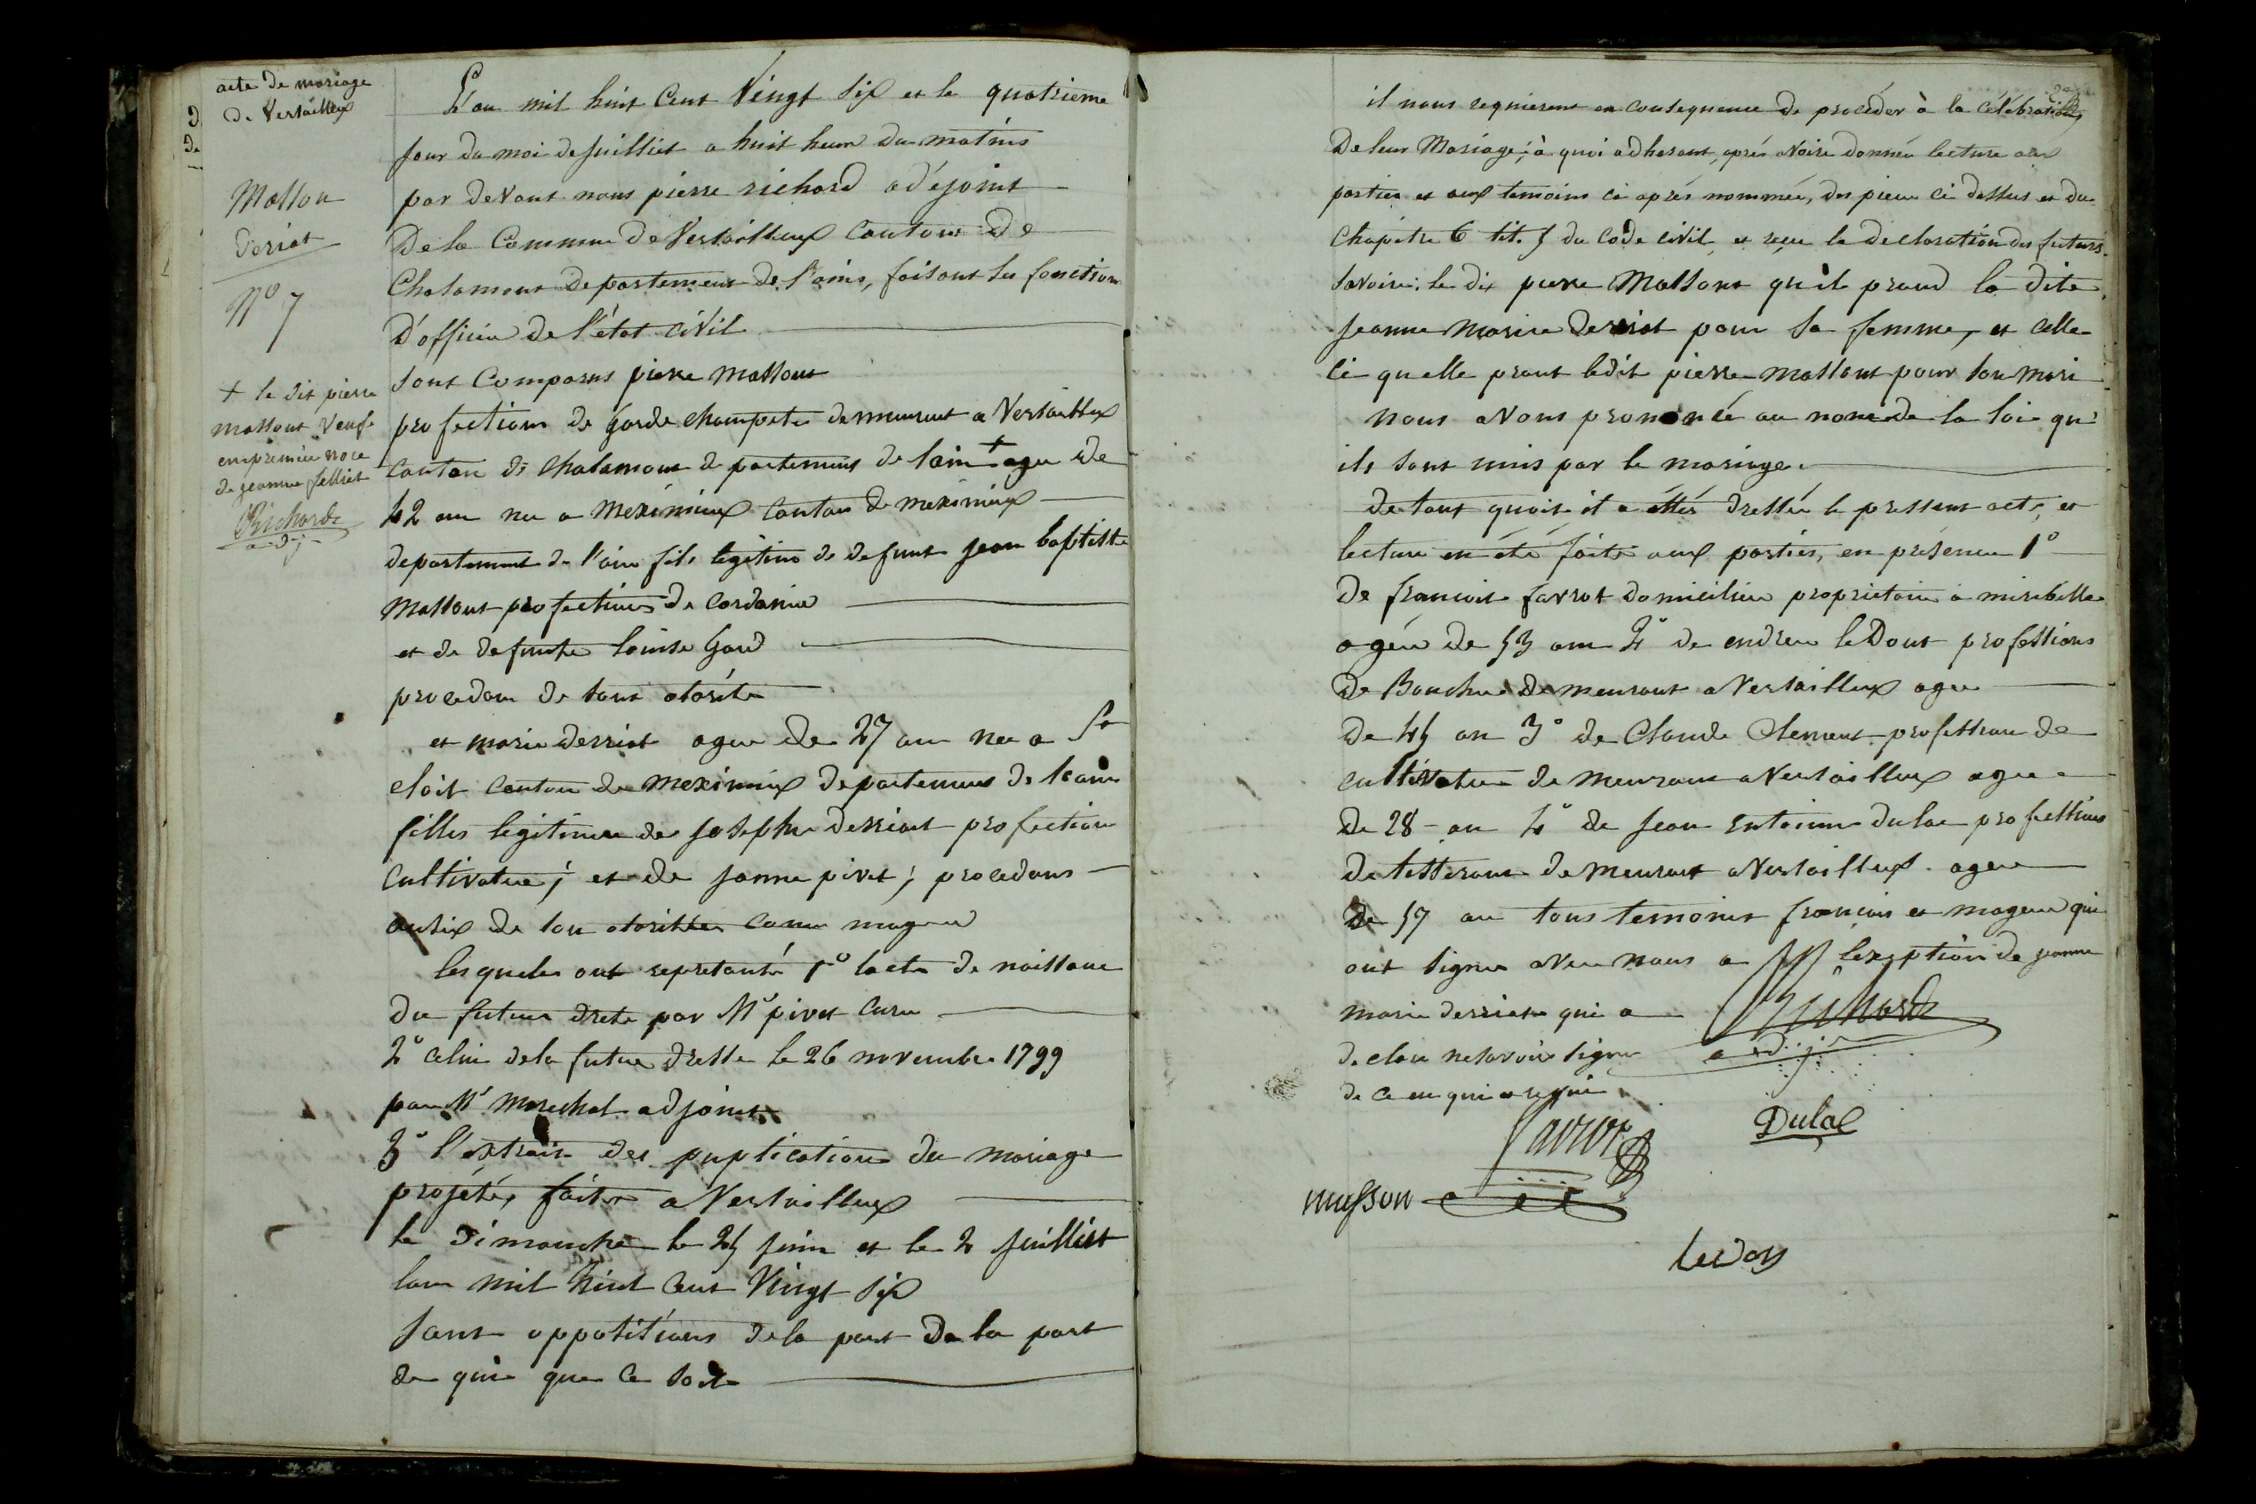 acte de mariage
de Versailleux
Masson
Deriat
N° 7
+ le dit pierre
massont veuf
en première noce
de jeanne felliet
Richard
adj
L'an mil huit Cent Vingt Six et le quatrieme
Jour du moi de Juilliet a huit heure du matins
par devant nous pierre richard adéjoint
De la Commune de Versailleux Canton De
Chalamont Departement de l'ains, faisant les fonction
D'officier de l'état civil
Sont Comparus pierre Massont
profection de Garde champete demeurent a Versailleux
Canton de chalamont departement de lain + agee de
42 an ne a Meximieux Canton de meximieux
departement de l'ain fils legitime de defunt Jean baptiste
Massont profections de Cordonie
et de defunte louise Gard
procedan de tout otorité
et marie derriat agee de 27 an nee a St
eloit Canton de meximieux departement de l'ain
filles legitime de Josephe derriat profection
Cultivature; et de Janne pivet; procedans
ausix de son otorittee come mageur
lesquele ont represtanté 1° lacte de naissance
du futur drete par Mr pivet Cure
2° celui dela future dresse le 26 novembre 1799
par Mr Marechal adjoint
3° l'extrait des puplications du mariage
projeté, faite a Versailleux
le dimanche le 25 juin et le 2 Juilliet
lan mil huit Cent Vingt Six
Sans oppositions dela part De la part
de qui que Ce soit
il nous requierent en consequence de procéder à la célébration
De leur Mariage; à quoi adherant, après avoire donnée lecture aux
parties et aux temoins ci après nommée, des pieces ci dessus et du
Chapitre 6 tit. 5 du Code Civil, et reçu la declaration des futurs.
Savoire: le dit pierre Massont qu'il prend la dite
Jeanne Marie derriat pour sa femme, et celle
ci quelle prant ledit pierre massont pour son mari
nous avons prononcé au nom de la loi qu'
ils sont unis par le mariage.
de tout quoit il a étés dressée le pressent acte, et
lecture en été faite aux parties, en présence 1°
De francois favrot domicilier proprietaire a miribelle
agée de 53 ans 2° de endreu leDout professions
De Boucher demeurant a Versailleux agee
de 45 an 3° de Claude Clement profession de
cultivature demeurant a Versailleux agee
de 28 an 4° de Jean entoinne dulac professions
de tisserant demeurant a Versailleux agee
de 57 an tous temoins francais et mageur qui
ont signee avec nous a lexeption de jeanne
marie derriat qui a
declare ne savoire signe
de ce enquis requis
Richard
adj
favrot
Dulac
masson
ledoux